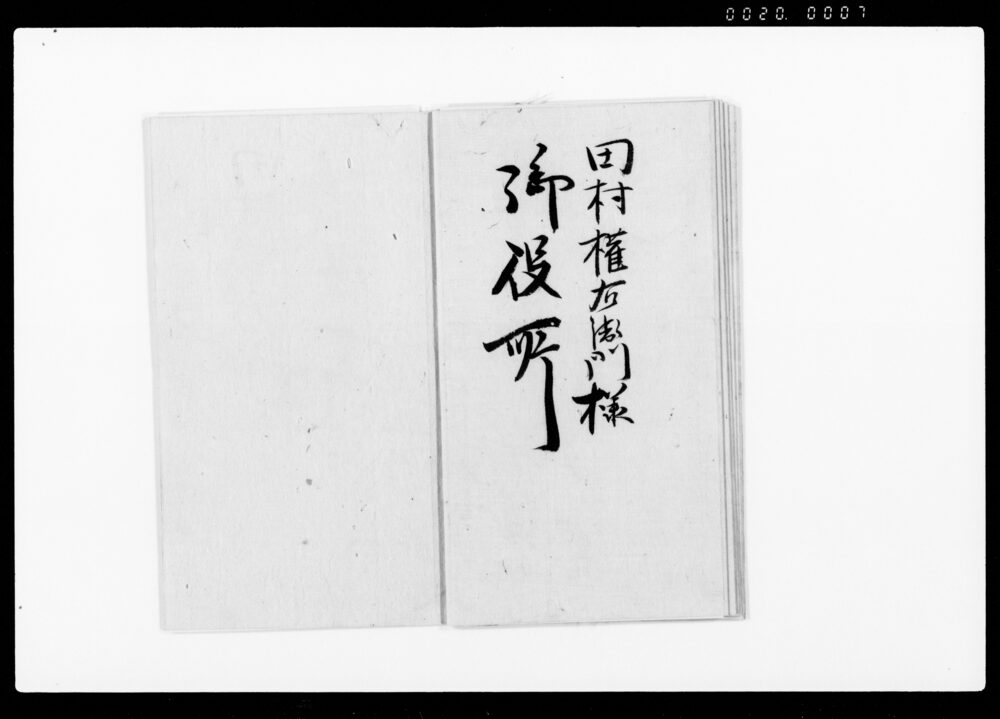 0020. 0007
田村權右衛門様
御役所